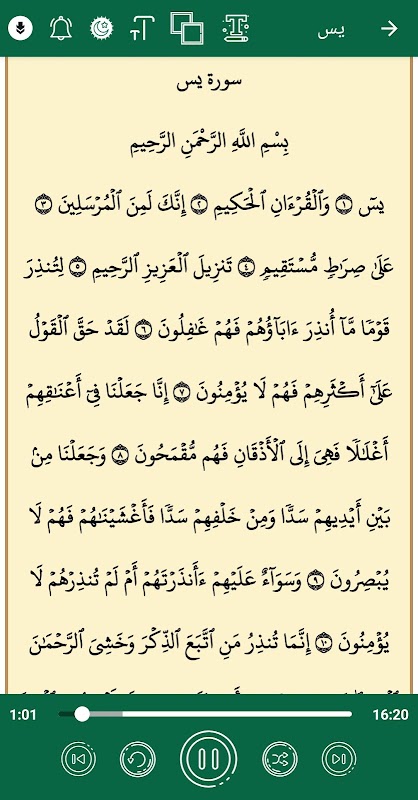 يس
سورة يس
بِسْمِ اللَّهِ الرَّحْمَنِ الرَّحِيمِ
يسٓ ١ وَٱلْقُرْءَانِ ٱلْحَكِيمِ ٢ إِنَّكَ لَمِنَ ٱلْمُرْسَلِينَ ٣
عَلَىٰ صِرَٰطٍ مُّسْتَقِيمٍ ٤ تَنزِيلَ ٱلْعَزِيزِ ٱلرَّحِيمِ ٥ لِتُنذِرَ
قَوْمًا مَّآ أُنذِرَ ءَابَآؤُهُمْ فَهُمْ غَٰفِلُونَ ٦ لَقَدْ حَقَّ ٱلْقَوْلُ
عَلَىٰٓ أَكْثَرِهِمْ فَهُمْ لَا يُؤْمِنُونَ ٧ إِنَّا جَعَلْنَا فِىٓ أَعْنَٰقِهِمْ
أَغْلَٰلًا فَهِىَ إِلَى ٱلْأَذْقَانِ فَهُم مُّقْمَحُونَ ٨ وَجَعَلْنَا مِنۢ
بَيْنِ أَيْدِيهِمْ سَدًّا وَمِنْ خَلْفِهِمْ سَدًّا فَأَغْشَيْنَٰهُمْ فَهُمْ لَا
يُبْصِرُونَ ٩ وَسَوَآءٌ عَلَيْهِمْ ءَأَنذَرْتَهُمْ أَمْ لَمْ تُنذِرْهُمْ لَا
يُؤْمِنُونَ ١٠ إِنَّمَا تُنذِرُ مَنِ ٱتَّبَعَ ٱلذِّكْرَ وَخَشِىَ ٱلرَّحْمَٰنَ
1:01 16:20